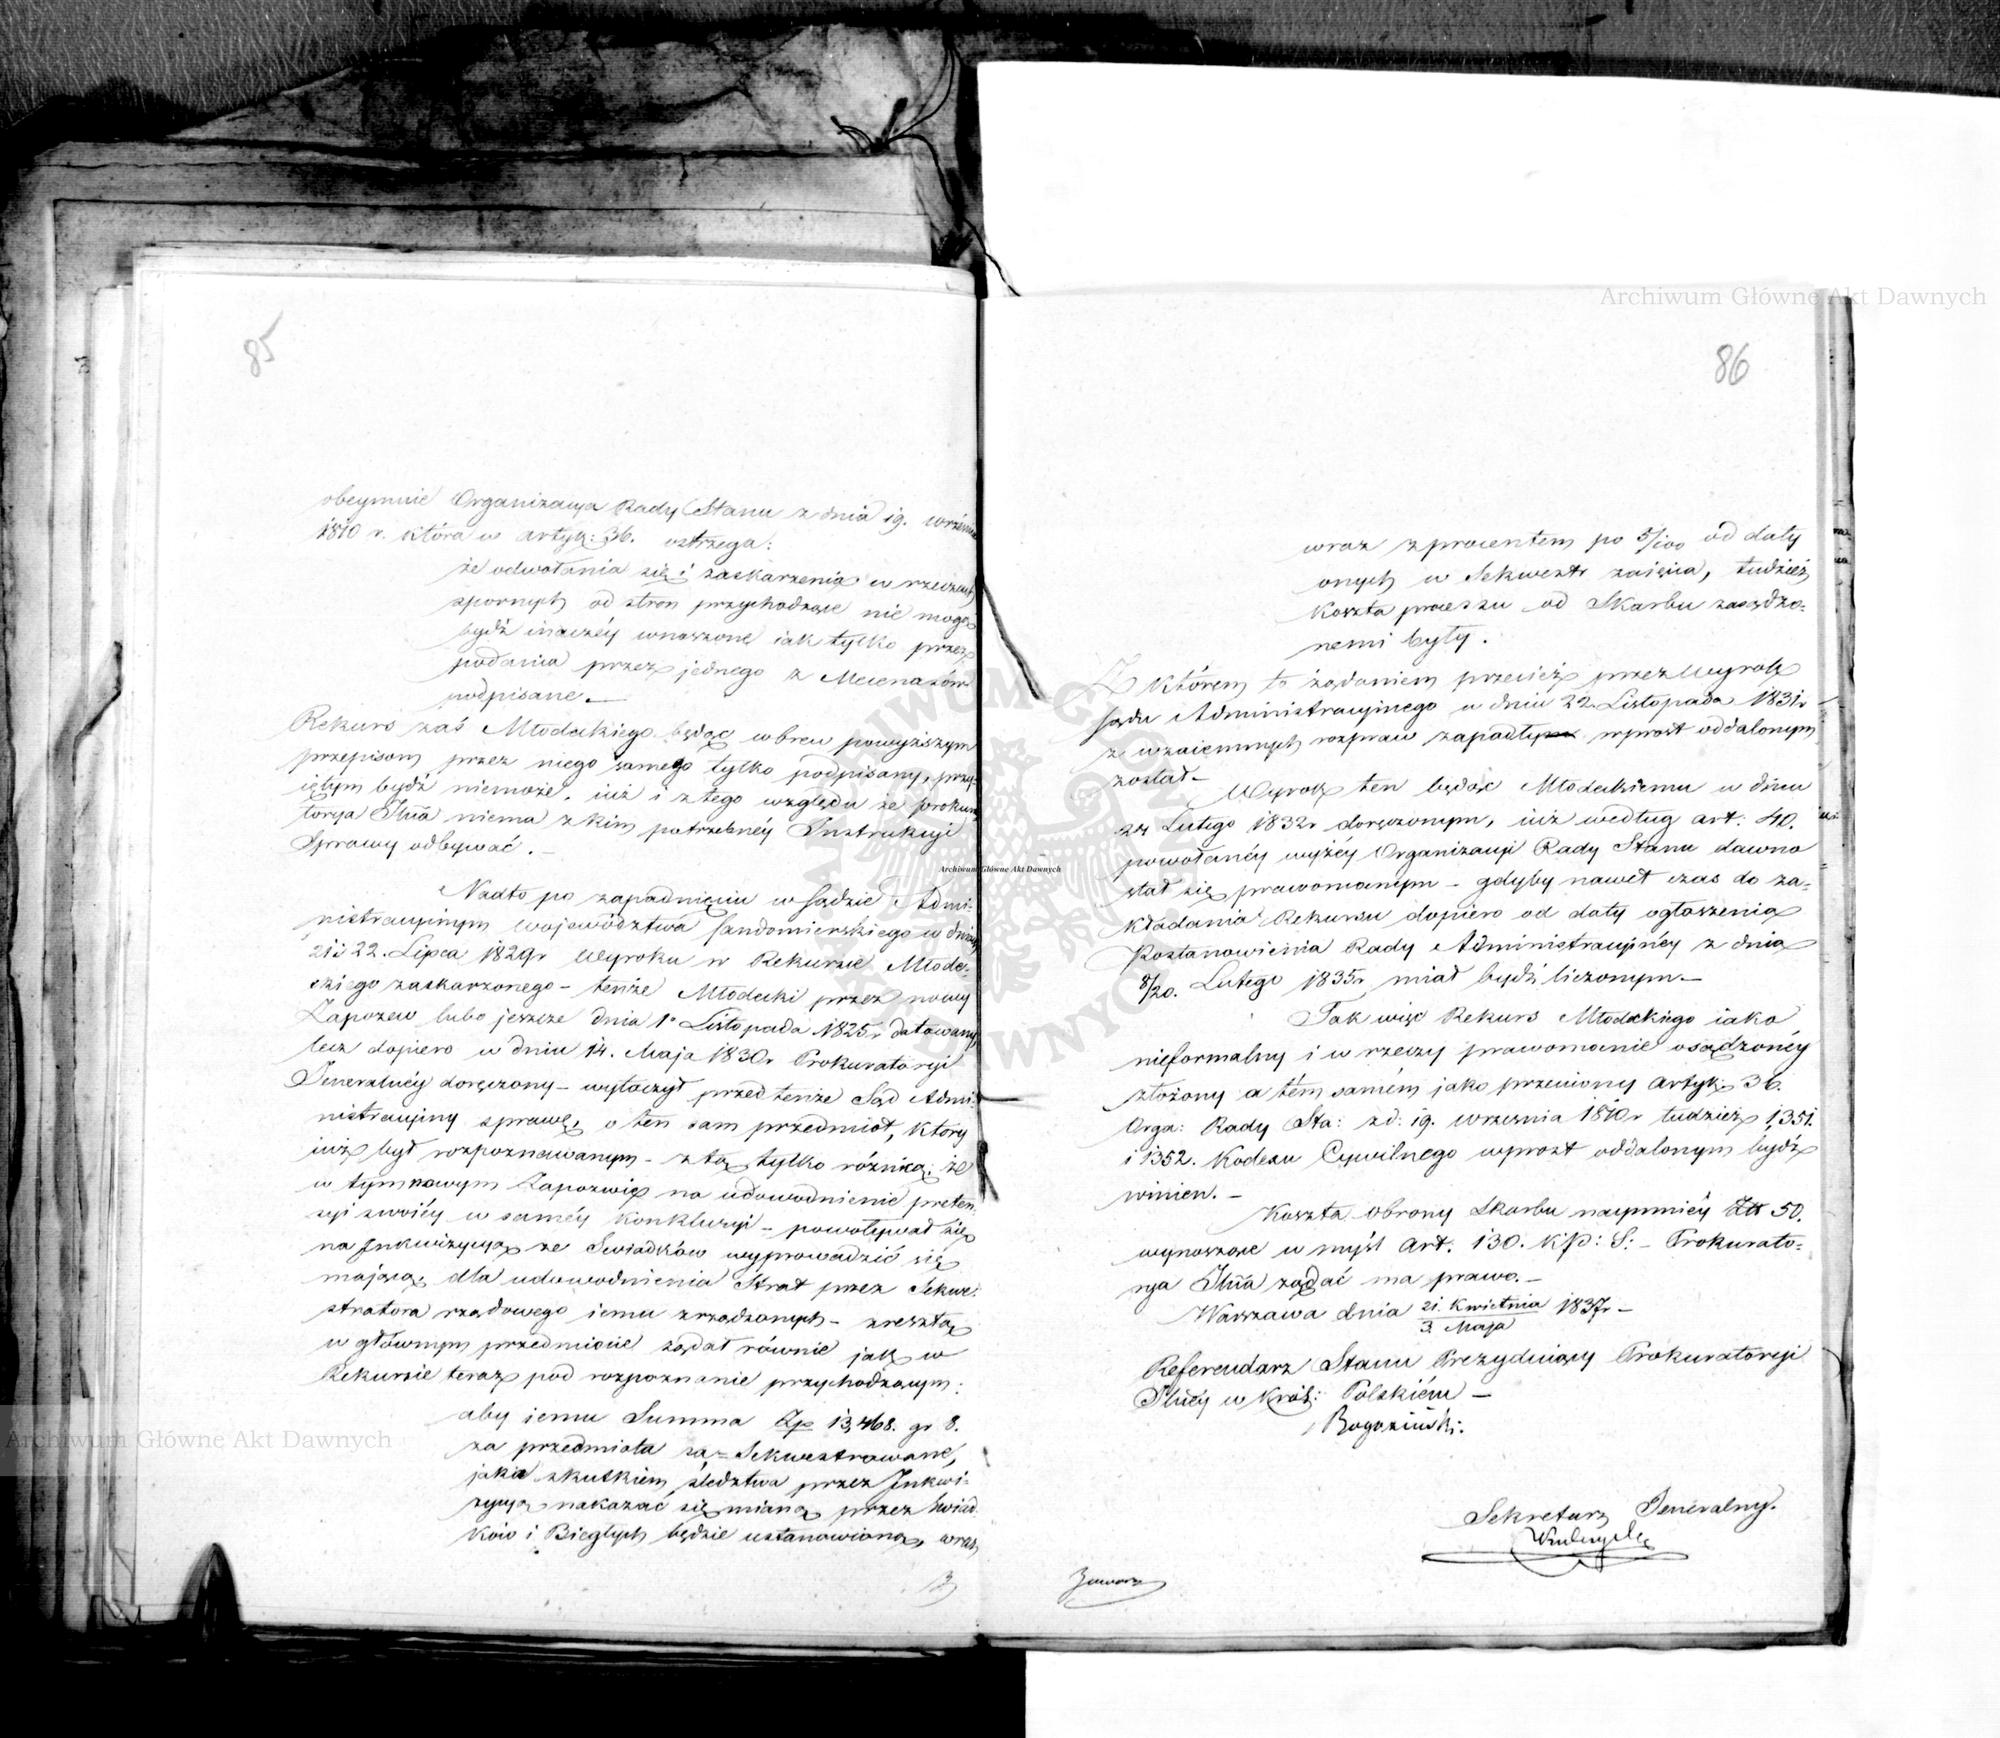 85
obeymuie Organizacya Rady Stanu z dnia 19. wrześnie
1810 r. która w artyk: 36. ostrzega:
że odwołania się i zaskarzenia w rzeczach
spornych od stron przychodzące nie mogą
bydź inaczéy wnoszone iak tylko przez
podania przez jednego z Mecenasów
podpisane. —
Rekurs zaś Młodeckiego będąc wbrew powyższym
przepisom przez niego samego tylko podpisany, przy-
iętym bydź niemoże, iuż i z tego względu że prokura
torya Jlna niema z kim potrzebnéy Instrukcyi
Sprawy odbywać. —
Nadto po zapadnięciu w Sądzie Admi-
nistracyinym Województwa Sandomierskiego w dniach
21 i 22. Lipca 1829r Wyroku w Rekursie Młode-
ckiego zaskarzonego – tenże Młodecki przez nowy
Zapozew lubo jeszcze dnia 1º Listopada 1825r datowany,
lecz dopiero w dniu 14. Maja 1830r Prokuratoryi
Jeneralnéy doręczony – wytoczył przed tenże Sąd Admi-
nistracyiny sprawę, o ten sam przedmiot, który
iuż był rozpoznawanym – z tą tylko różnicą, że
w tym nowym Zapozwie na udowodnienie preten-
syi swoiéy w saméy konkluzyi – powoływał się
na Inkwizycyą ze Swiadków wyprowadzić się
maiącą, dla udowodnienia Strat przez Sekwe-
stratora rządowego iemu zrządzonych – zresztą
w głównym przedmiocie żądał równie jak w
Rekursie teraz pod rozpoznanie przychodzącym:
aby iemu Summa Zp 13,468. gr 8.
za przedmiota za=Sekwestrowane,
jakie skutkiem śledztwa przez Inkwi-
zycyą nakazać się mianą przez świad
ków i Biegłych będzie ustanowioną, wraz
86
wraz z procentem po 5/100 od daty
onych w Sekwestr zaięcia, tudzież
koszta processu od Skarbu zasądzo-
nemi były.
Z którem to żądaniem przecież przez Wyrok
Sądu Administracyinego w dniu 22. Listopada 1831r
z wzaiemnych rozpraw zapadły wprost oddalonym
został –
Wyrok ten będąc Młodeckiemu w dniu
Lutego 1832r doręczonym, iuż według art: 40.
powołanéy wyżéy Organizacyi Rady Stanu dawno
stał się prawomocnym – gdyby nawet czas do za-
kładania Rekursu dopiero od daty ogłoszenia
Postanowienia Rady Administracyinéy z dnia
8/20. Lutego 1835r miał bydź liczonym. —
Tak więc Rekurs Młodeckiego iako
nieformalny i w rzeczy prawomocnie osądzonéy
złożony a tém samém jako przeciwny artyk: 36.
Orga: Rady Sta: z d: 19. września 1810r tudzież 1351.
i 1352. Kodexu Cywilnego wprost oddalonym bydź
winien. –
Koszta obrony Skarbu naymniéy Złt 50.
wynoszące w myśl Art. 130. K.P: S: – Prokurato-
rya Jlna żądać ma prawo. –
Warszawa dnia 21. Kwietnia 1837r –
3. Maja
Referendarz Stanu Prezyduiący Prokuratoryi
Jlnéy w Król: Polskiém –
Rogoziński.
Sekretarz Jeneralny.
Archiwum Główne Akt Dawnych
Archiwum Główne Akt Dawnych
Archiwum Główne Akt Dawnych